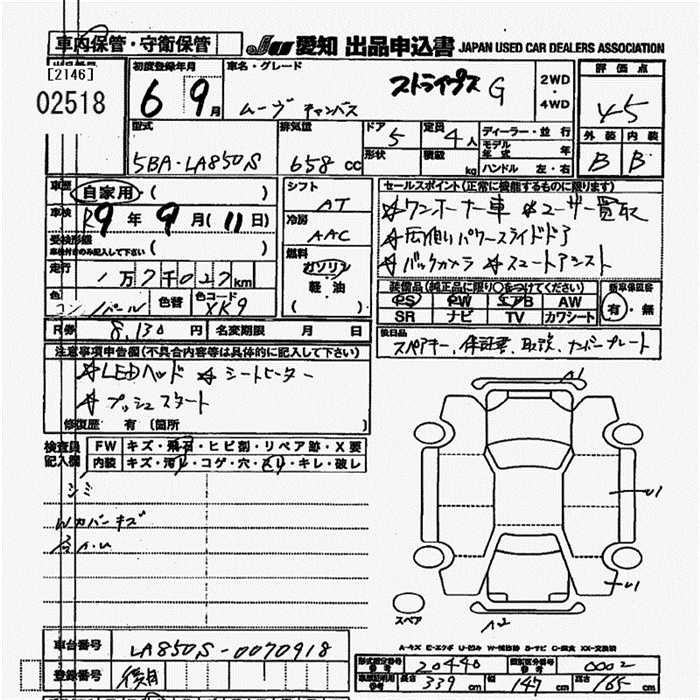 車内保管・守衛保管
JU 愛知 出品申込書 JAPAN USED CAR DEALERS ASSOCIATION
[2146]
02518
初度登録年月
6 9月
車名・グレード
ストライプス G
ムーヴ キャンバス
2WD
・
4WD
評価点
4.5
型式
5BA-LA850S
排気量
658 CC
ドア 5
形状
定員 4人
積載 kg
ディーラー・並行
モデル年式 年
ハンドル 左・右
外装 内装
B B
車歴 自家用・( )
車検 R9年9月(11日)
受検形態
車検付のみ記入して下さい ( )
走行 1万7千027km
色 パール
色替
色コード XK9
シフト
AT
冷房
AAC
燃料
ガソリン
軽・油
( )
セールスポイント(正常に機能するものに限ります)
☆ワンオーナー車 ☆ユーザー買取
☆両側パワースライドドア
☆バックカメラ ☆スマートアシスト
装備品(純正品に限り○をつけてください)
PS PW エアB AW
SR ナビ TV カワシート
新車保証書
有・無
後日品
スペアキー、保証書、取説、ナンバープレート
R券 8,130円 名変期限 月 日
注意事項申告欄(不具合内容等は具体的に記入して下さい)
☆LEDヘッド ☆シートヒーター
☆プッシュスタート
修復歴 有(箇所 )
検査員記入欄
FW キズ・飛石・ヒビ割・リペア跡・X要
内装 キズ・汚レ・コゲ・穴・スリ・キレ・破レ
シミ
Wカバーキズ
各A.U
A1
U1
U1
A2
スペア
A-キズ E-エクボ U-凹み W-補修跡 S-サビ C-腐食 XX-交換済
車台番号 LA850S-0070918
登録番号 後日
型式指定番号 参考 20440
類別区分番号 参考 0002
車両諸元 参考 長さ 339cm 幅 147cm 高さ 165cm